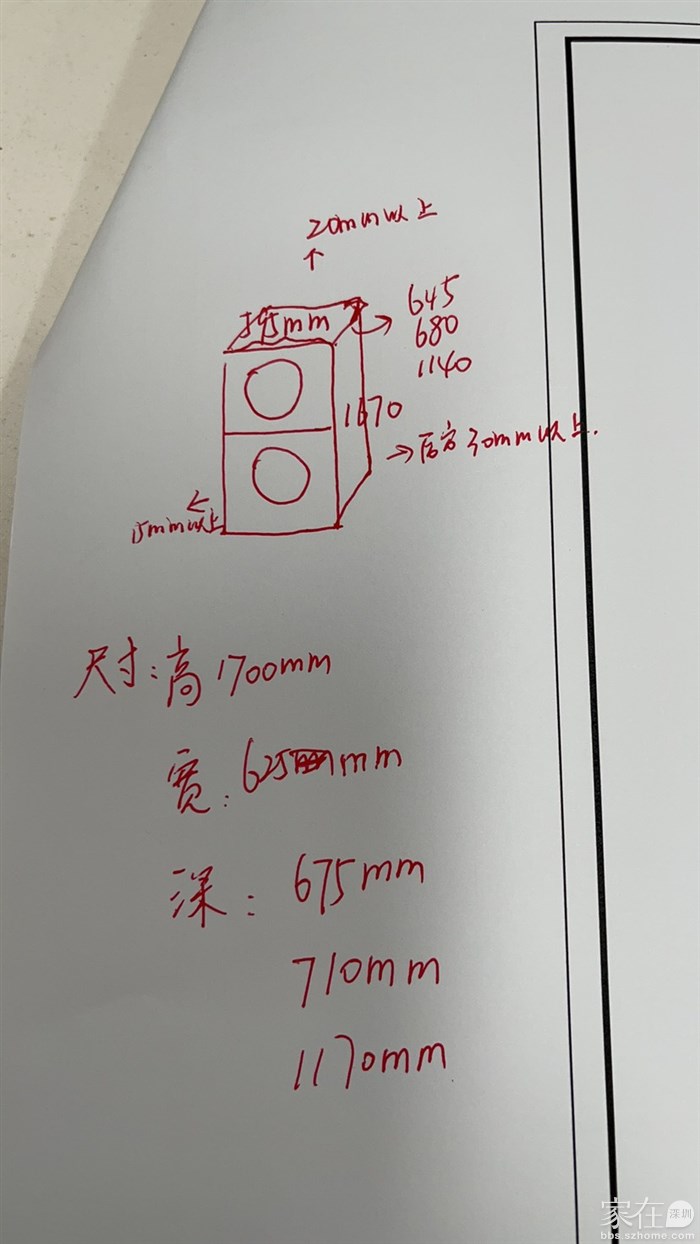 20mm以上
↑
595mm
645
680
1140
1670
→后方30mm以上.
←
15mm以上
尺寸:高1700mm
宽:625mm
深:675mm
710mm
1170mm
家在深圳
bbs.szhome.com